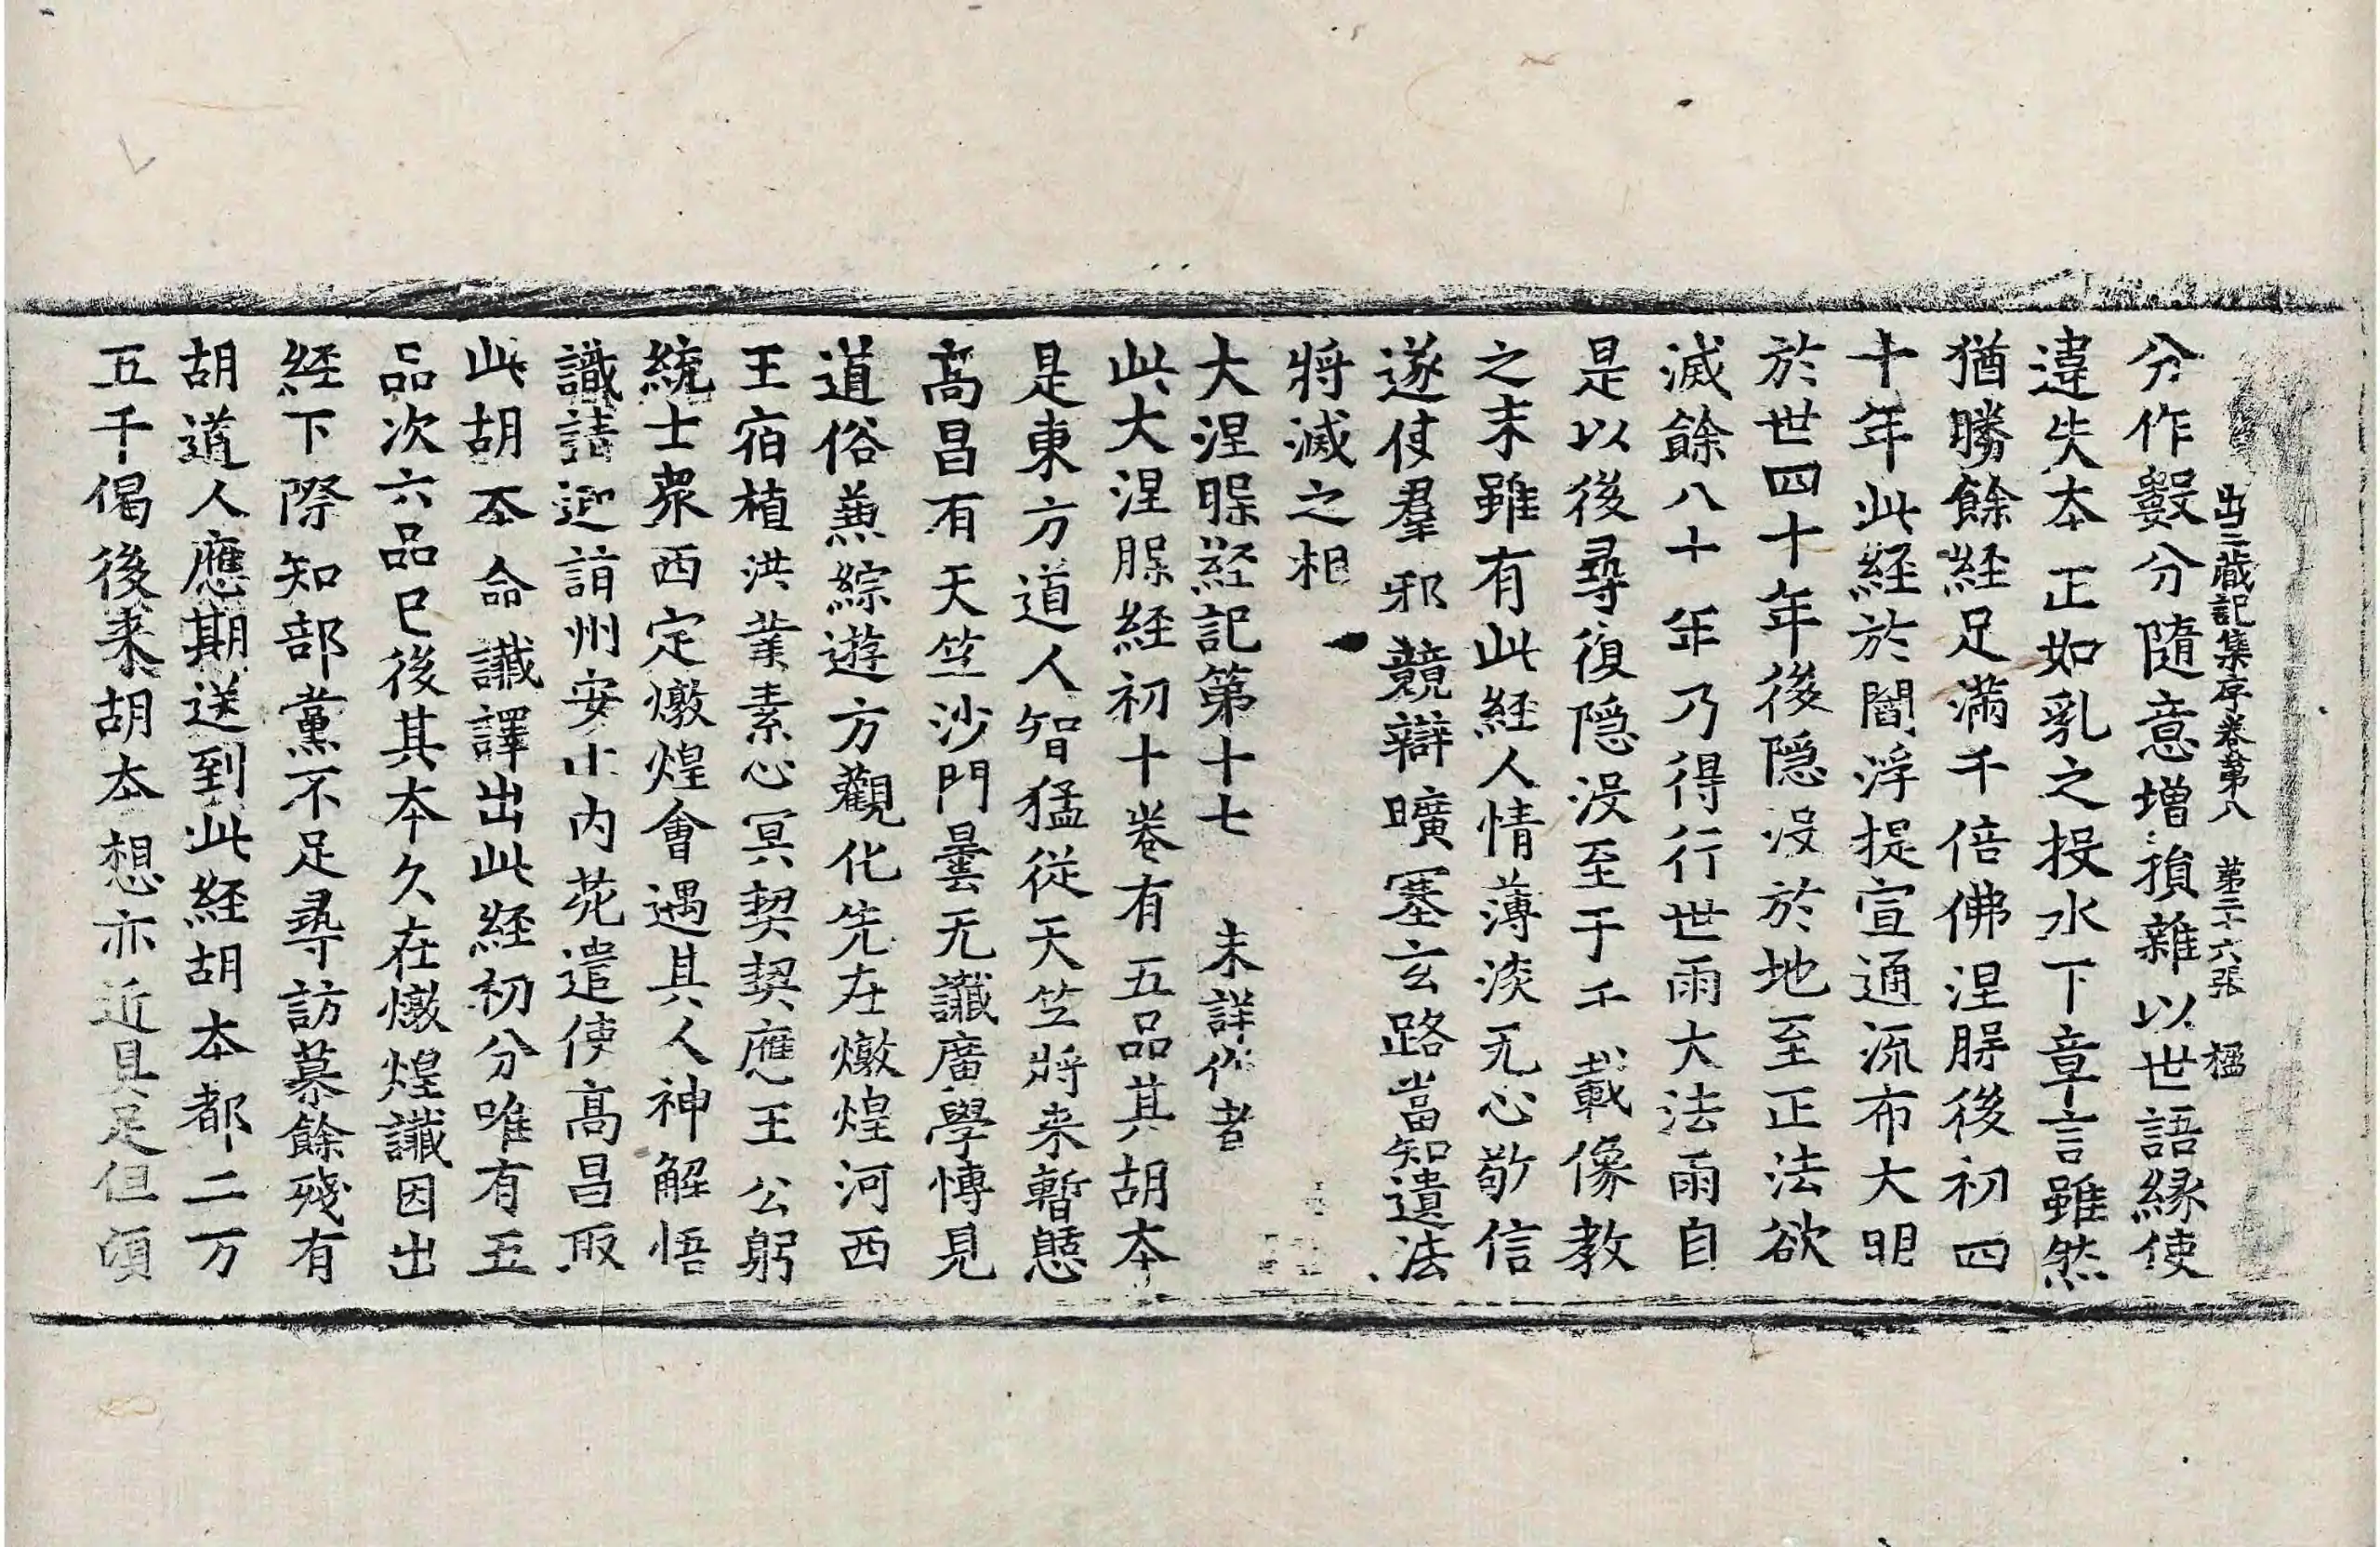 出三藏記集序卷第八 第二十六張 楹
分作數分隨意增損雜以世語緣使
違失夲正如乳之投水下章言雖然
猶勝餘経足滿千倍佛涅脵後初四
十年此経於閻浮提宣通流布大明
於世四十年後隱没於地至正法欲
滅餘八十年乃得行世雨大法雨自
是以後尋復隱没至于千載像教
之末雖有此経人情薄淡无心敬信
遂使羣邪競辯曠塞玄路當知遺法
將滅之相
大涅脵経記第十七 未詳作者
此大涅脵経初十卷有五品其胡夲
是東方道人智猛從天竺將来暫憩
髙昌有天竺沙門曇无讖廣學愽見
道俗兼綜遊方觀化先在燉煌河西
王宿植洪業素心冥契契應王公躬
統士衆西定燉煌會遇其人神解悟
識請迎詣州安止内苑遣使髙昌取
此胡夲命讖譯出此経初分唯有五
品次六品已後其夲久在燉煌讖因出
経下際知部黨不足尋訪募餘殘有
胡道人應期送到此経胡夲都二万
五千偈後来胡夲想亦近具足但頃